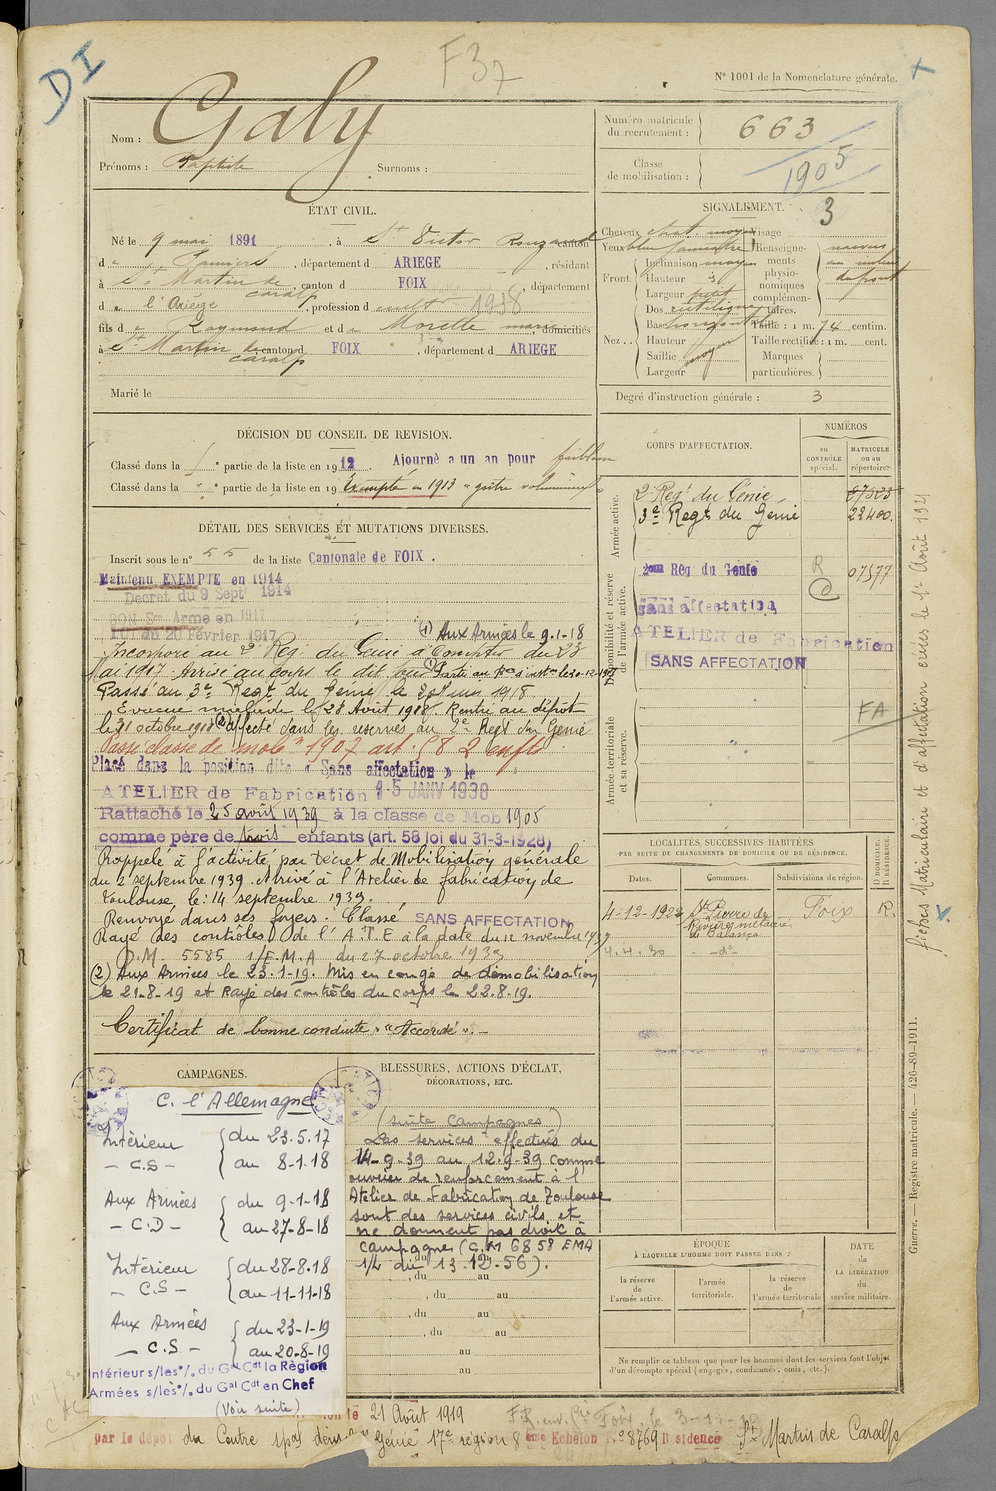 DI
F37
N° 1001 de la Nomenclature générale.
Nom : Galy
Prénoms : Baptiste Surnoms :
Numéro matricule du recrutement : 663
Classe de mobilisation : 1905
3
ÉTAT CIVIL.
Né le 9 mai 1891, à St Victor Rouzaud canton
d e Pamiers, département d ARIEGE, résidant
à St Martin de Caralp, canton d FOIX, département
d e l'Ariège, profession d cultr 1918
fils d e Raymond et d e Morelle Marie, domiciliés
à St Martin de Caralp canton d FOIX, département d ARIEGE
Marié le
SIGNALEMENT.
Cheveux chat. moyen Visage
Yeux bleu
Front. Inclinaison moyen
Hauteur
Largeur petit
Nez... Dos rectiligne
Base horizontal
Hauteur
Saillie moyen
Largeur
Renseignements physionomiques complémentaires. naevus au milieu du front
Taille : 1 m. 74 centim.
Taille rectifiée : 1 m. cent.
Marques particulières.
Degré d'instruction générale : 3
DÉCISION DU CONSEIL DE REVISION.
Classé dans la 1° partie de la liste en 1912. Ajourné a un an pour faiblesse
Classé dans la " ° partie de la liste en 19 Exempté en 1913 "goître volumineux"
DÉTAIL DES SERVICES ET MUTATIONS DIVERSES.
Inscrit sous le n° 55 de la liste Cantonale de FOIX.
Maintenu EXEMPTE en 1914
Decret du 9 Septe 1914
BON Sce Armé en 1917
LOI du 20 Février 1917
(1) Aux Armées le 9-1-18
Incorporé au 2e Rég. du Génie à compter du 23
Mai 1917 Arrivé au corps le dit jour
Passé au 3e Regt du Genie le
Evacué malade le 28 Août 1918. Rentré au dépôt
le 31 octobre 1918 (2) affecté dans les réserves au 2e Regt du Genie
Passé classe de mobon 1907 art. 58 2 enfts
Placé dans la position dite « Sans affectation » le
ATELIER de Fabrication 15 JANV 1938
Rattaché le 25 août 1939 à la classe de Mob 1905
comme père de trois enfants (art. 58 loi du 31-3-1928)
Rappelé à l'activité par Décret de Mobilisation générale
du 2 septembre 1939. Arrivé à l'Atelier de fabrication de
Toulouse le : 14 septembre 1939.
Renvoyé dans ses foyers. Classé SANS AFFECTATION
Rayé des contrôles de l'A.T.E à la date du 12 novembre 1939
D.M. 5585 1/E.M.A du 27 octobre 1939
(2) Aux Armées le 23-1-19. Mis en congé de démobilisation
le 21-8-19 et Rayé des contrôles du corps le 22.8.19.
Certificat de bonne conduite "Accordé". -
CORPS D'AFFECTATION.
NUMÉROS
au CONTRÔLE spécial.
MATRICULE ou au répertoire.
Armée active.
2e Regt du Génie 67525
3e Regt du Genie 22400.
Disponibilité et réserve de l'armée active.
2eme Rég du Génie R 07577
sans affectation
ATELIER de Fabrication
SANS AFFECTATION
FA
Armée territoriale et sa réserve.
LOCALITÉS SUCCESSIVES HABITÉES
PAR SUITE DE CHANGEMENTS DE DOMICILE OU DE RÉSIDENCE.
Dates. Communes. Subdivisions de région. D DOMICILE, R RÉSIDENCE.
4-12-1922 St Pierre de Rivière métairie de Calance Foix R.
4.4.30 - do -
fiches Matriculaire et d'affectation crées le 1er Août 1921
Guerre. — Registre matricule. — 426-89-1911.
CAMPAGNES.
C. l'Allemagne
Intérieur - C.S - du 23.5.17 au 8-1-18
Aux Armées - C.D - du 9-1-18 au 27-8-18
Intérieur - C.S - du 28-8-18 au 11-11-18
Aux Armées - C.S - du 23-1-19 au 20-8-19
Intérieur s/les°/. du Gal Cdt la Région
Armées s/les°/. du Gal Cdt en Chef
(Voir suite)
BLESSURES, ACTIONS D'ÉCLAT,
DÉCORATIONS, ETC.
(suite Campagnes)
Les services effectués du
14-9-39 au 12-9-39 comme
ouvrier de renforcement à l'
Atelier de Fabrication de Toulouse
sont des services civils et
ne donnent pas droit à
campagne (C.M 6858 EMA
1/L du 13.12-56).
, du au
, du au
, du au
, du au
au
au
ÉPOQUE
À LAQUELLE L'HOMME DOIT PASSER DANS :
la réserve de l'armée active.
l'armée territoriale.
la réserve de l'armée territoriale
DATE de LA LIBÉRATION du service militaire.
Ne remplir ce tableau que pour les hommes dont les services font l'objet d'un décompte spécial (engagés, condamnés, omis, etc.).
le 21 Août 1919
par le dépôt du Centre Génie 17e région 8 eme Echelon N° 8769 Résidence St Martin de Caralp